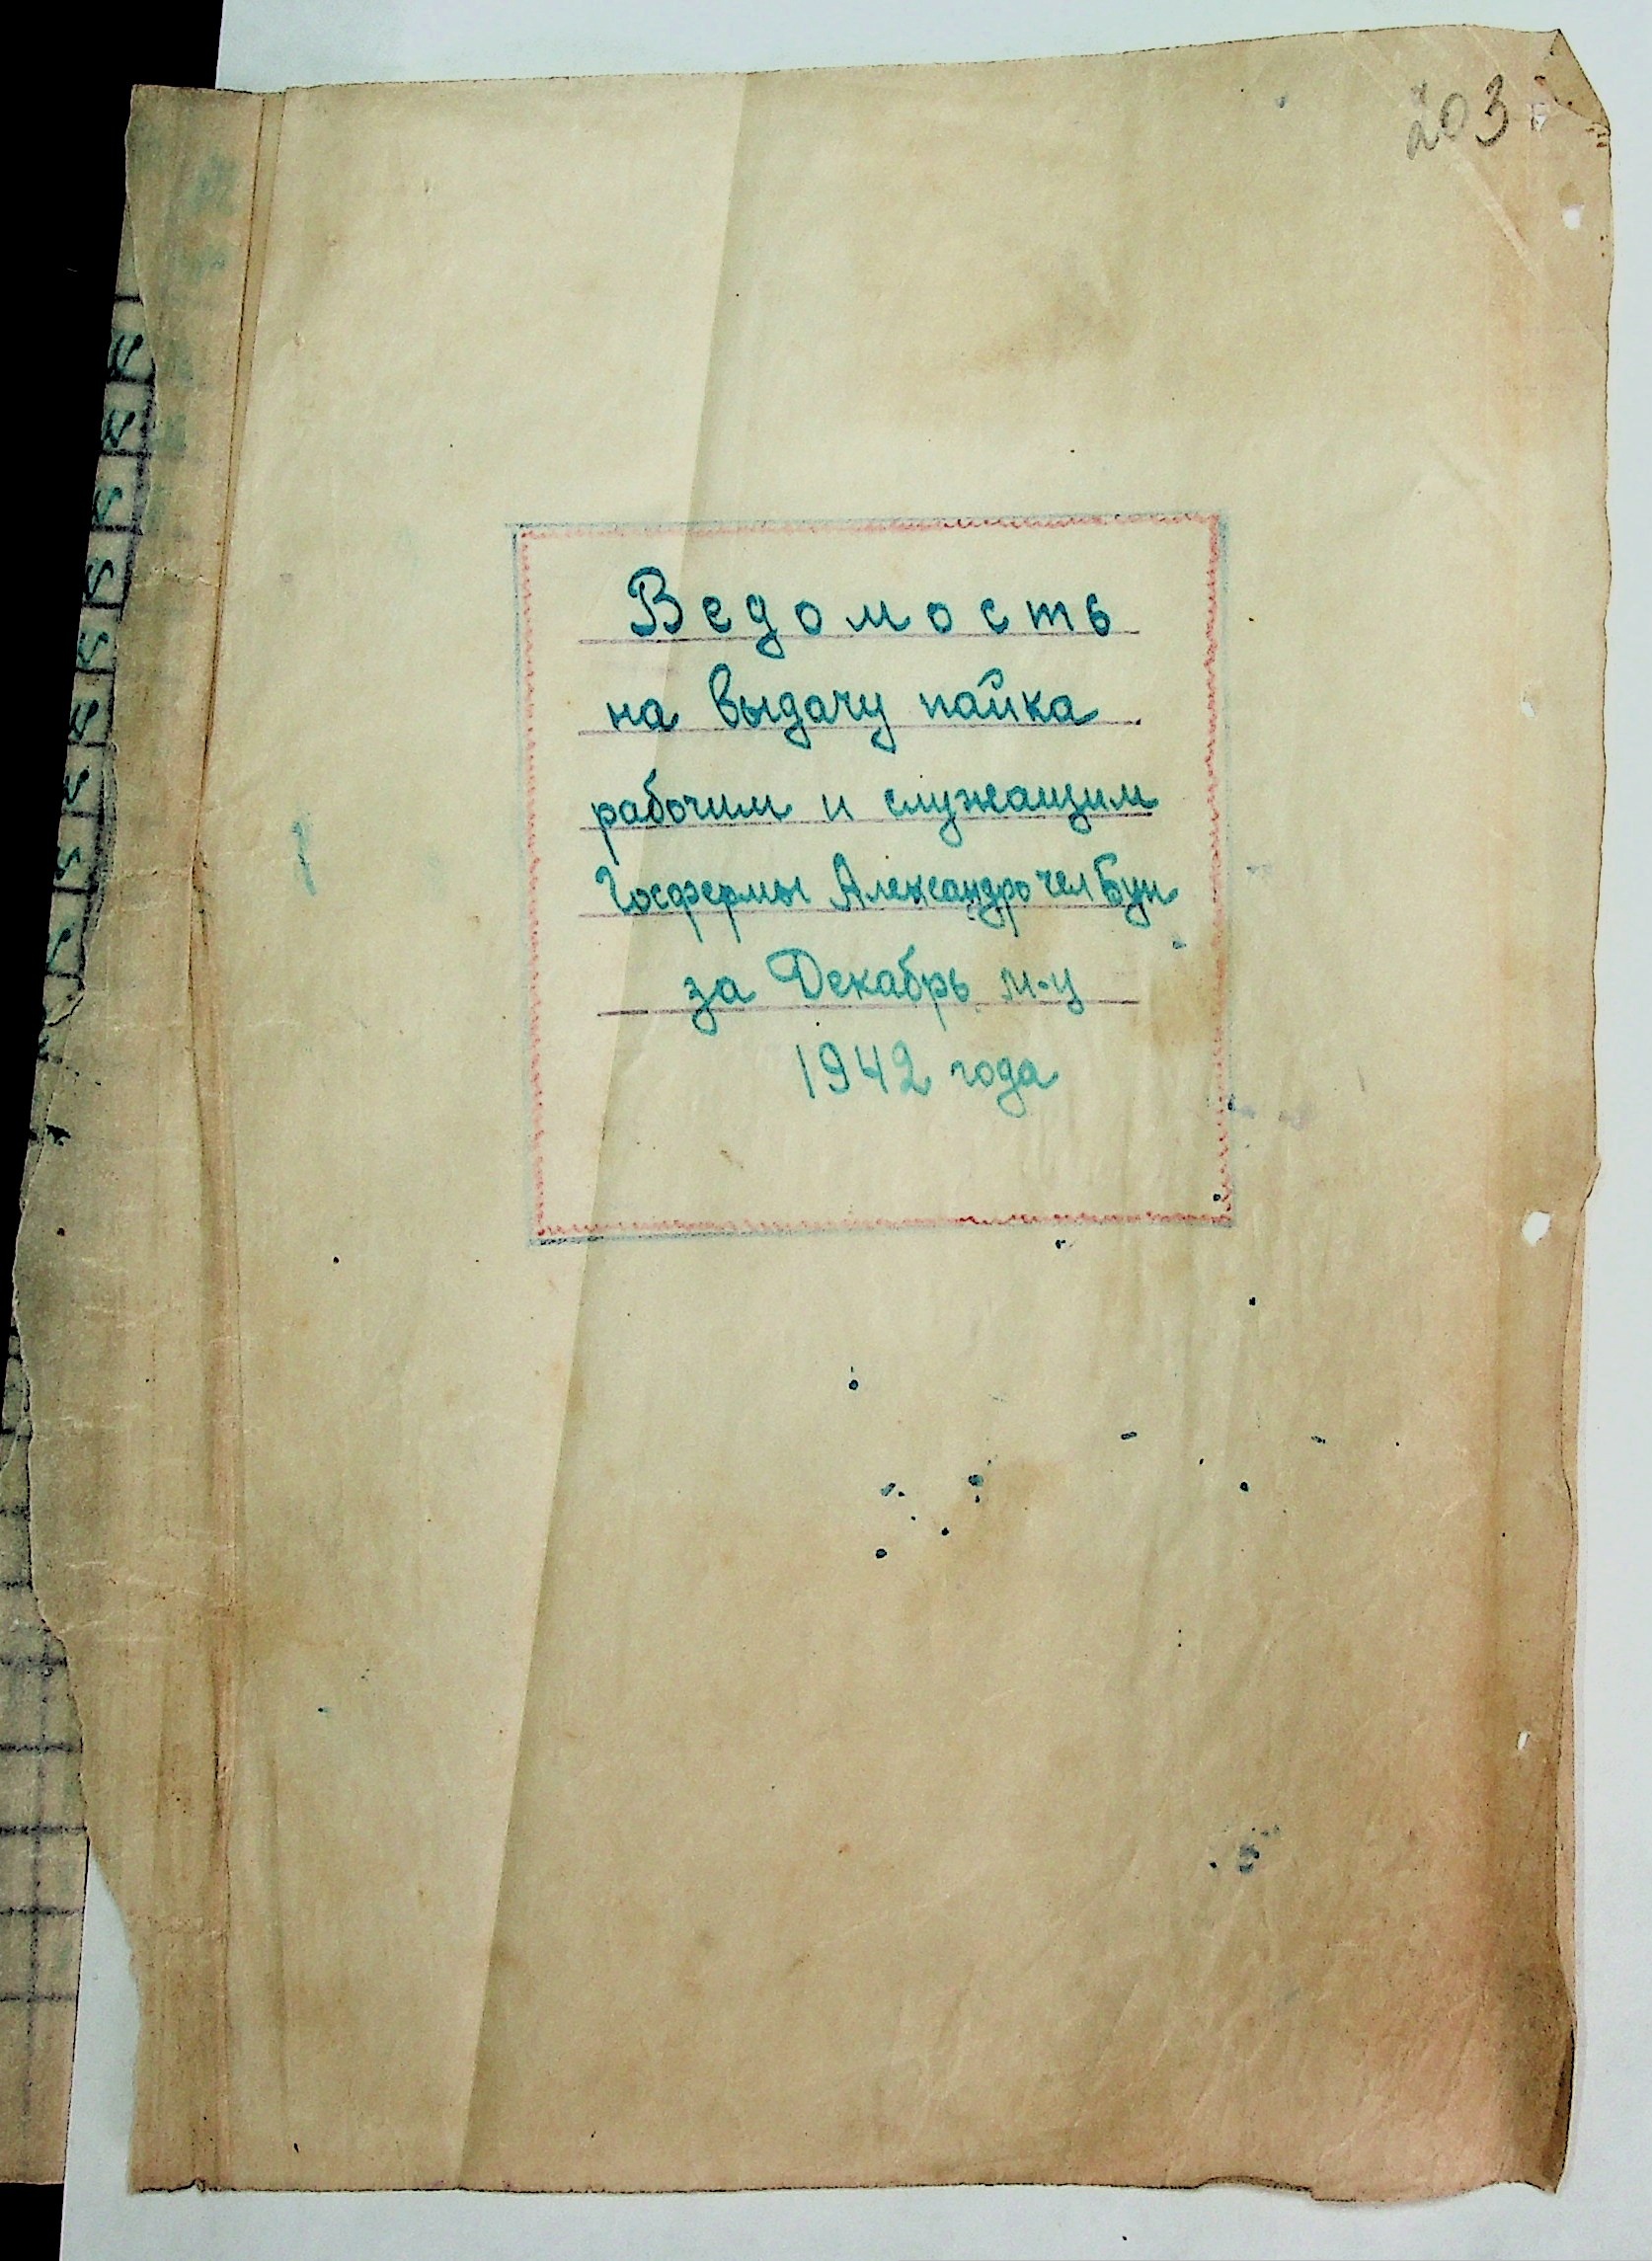 203
Ведомость
на выдачу пайка
рабочим и служащим
Госфермы Александро чел Бун
за Декабрь м-ц
1942 года